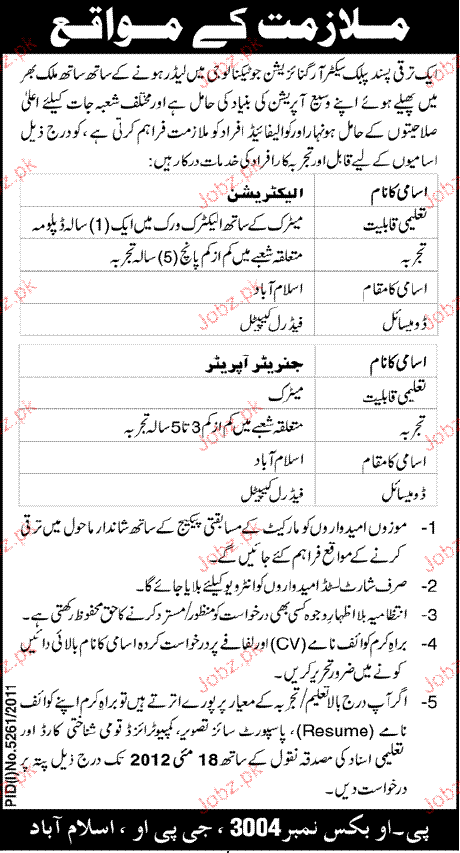 ملازمت کے مواقع
ایک ترقی پسند پبلک سیکٹر آرگنائزیشن جو ٹیکنالوجی میں لیڈر ہونے کے ساتھ ساتھ ملک بھر
میں پھیلے ہوئے اپنے وسیع آپریشن کی بنیاد کی حامل ہے اور مختلف شعبہ جات کیلئے اعلیٰ
صلاحیتوں کے حامل ہونہار اور کوالیفائیڈ افراد کو ملازمت فراہم کرتی ہے، کو درج ذیل
اسامیوں کے لیے قابل اور تجربہ کار افراد کی خدمات درکار ہیں:
اسامی کا نام الیکٹریشن
تعلیمی قابلیت میٹرک کے ساتھ الیکٹرک ورک میں ایک (1) سالہ ڈپلومہ
تجربہ متعلقہ شعبے میں کم از کم پانچ (5) سالہ تجربہ
اسامی کا مقام اسلام آباد
ڈومیسائل فیڈرل کیپیٹل
اسامی کا نام جنریٹر آپریٹر
تعلیمی قابلیت میٹرک
تجربہ متعلقہ شعبے میں کم از کم 3 تا 5 سالہ تجربہ
اسامی کا مقام اسلام آباد
ڈومیسائل فیڈرل کیپیٹل
1- موزوں امیدواروں کو مارکیٹ کے مسابقتی پیکیج کے ساتھ شاندار ماحول میں ترقی
کرنے کے مواقع فراہم کئے جائیں گے۔
2- صرف شارٹ لسٹڈ امیدواروں کو انٹرویو کیلئے بلایا جائے گا۔
3- انتظامیہ بلا اظہار وجوہ کسی بھی درخواست کو منظور/مسترد کرنے کا حق محفوظ رکھتی ہے۔
4- براہ کرم کوائف نامے (CV) اور لفافے پر درخواست کردہ اسامی کا نام بالائی دائیں
کونے میں ضرور تحریر کریں۔
5- اگر آپ درج بالا تعلیم/تجربہ کے معیار پر پورے اترتے ہیں تو براہ کرم اپنے کوائف
نامے (Resume)، پاسپورٹ سائز تصویر، کمپیوٹرائزڈ قومی شناختی کارڈ اور
تعلیمی اسناد کی مصدقہ نقول کے ساتھ 18 مئی 2012 تک درج ذیل پتہ پر
درخواست دیں۔
پی۔او بکس نمبر 3004، جی پی او، اسلام آباد
PID(I)No.5261/2011
Jobz.pk